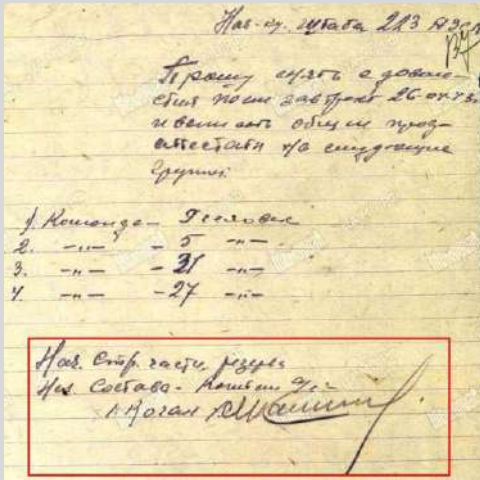 Нач-ку штаба 223 АЗСП
Прошу снять с доволь-
ствия после завтрака 26.04.43г.
и выписать общие прод-
аттестаты на следующие
группы:
1. Команда - 7 человек
2. -„- - 5 -„-
3. -„- - 21 -„-
4. -„- - 27 -„-
Нач. Стр. части резерва
Нач. Состава - Капитан